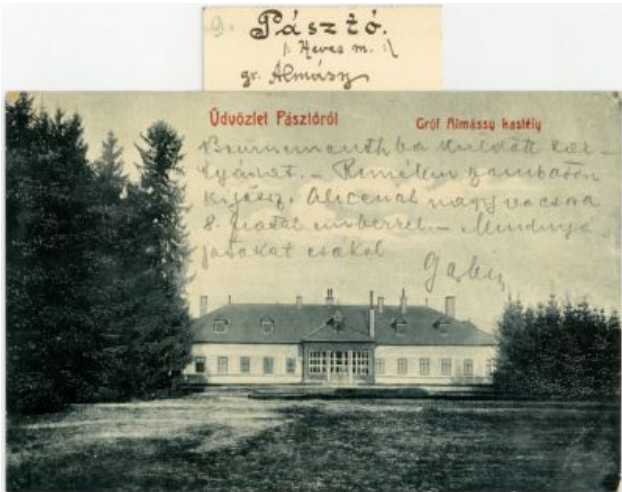 9. Pásztó.
/: Heves m. :/
gr. Almásy
Üdvözlet Pásztóról
Gróf Almássy kastély
Bournemouthba küldött kár-
tyánat. - Remélem szombaton
kijösz. Alicenál nagy vacsora
8. fiatal emberrel. - Mindnyá-
jatokat csókol
Gabi